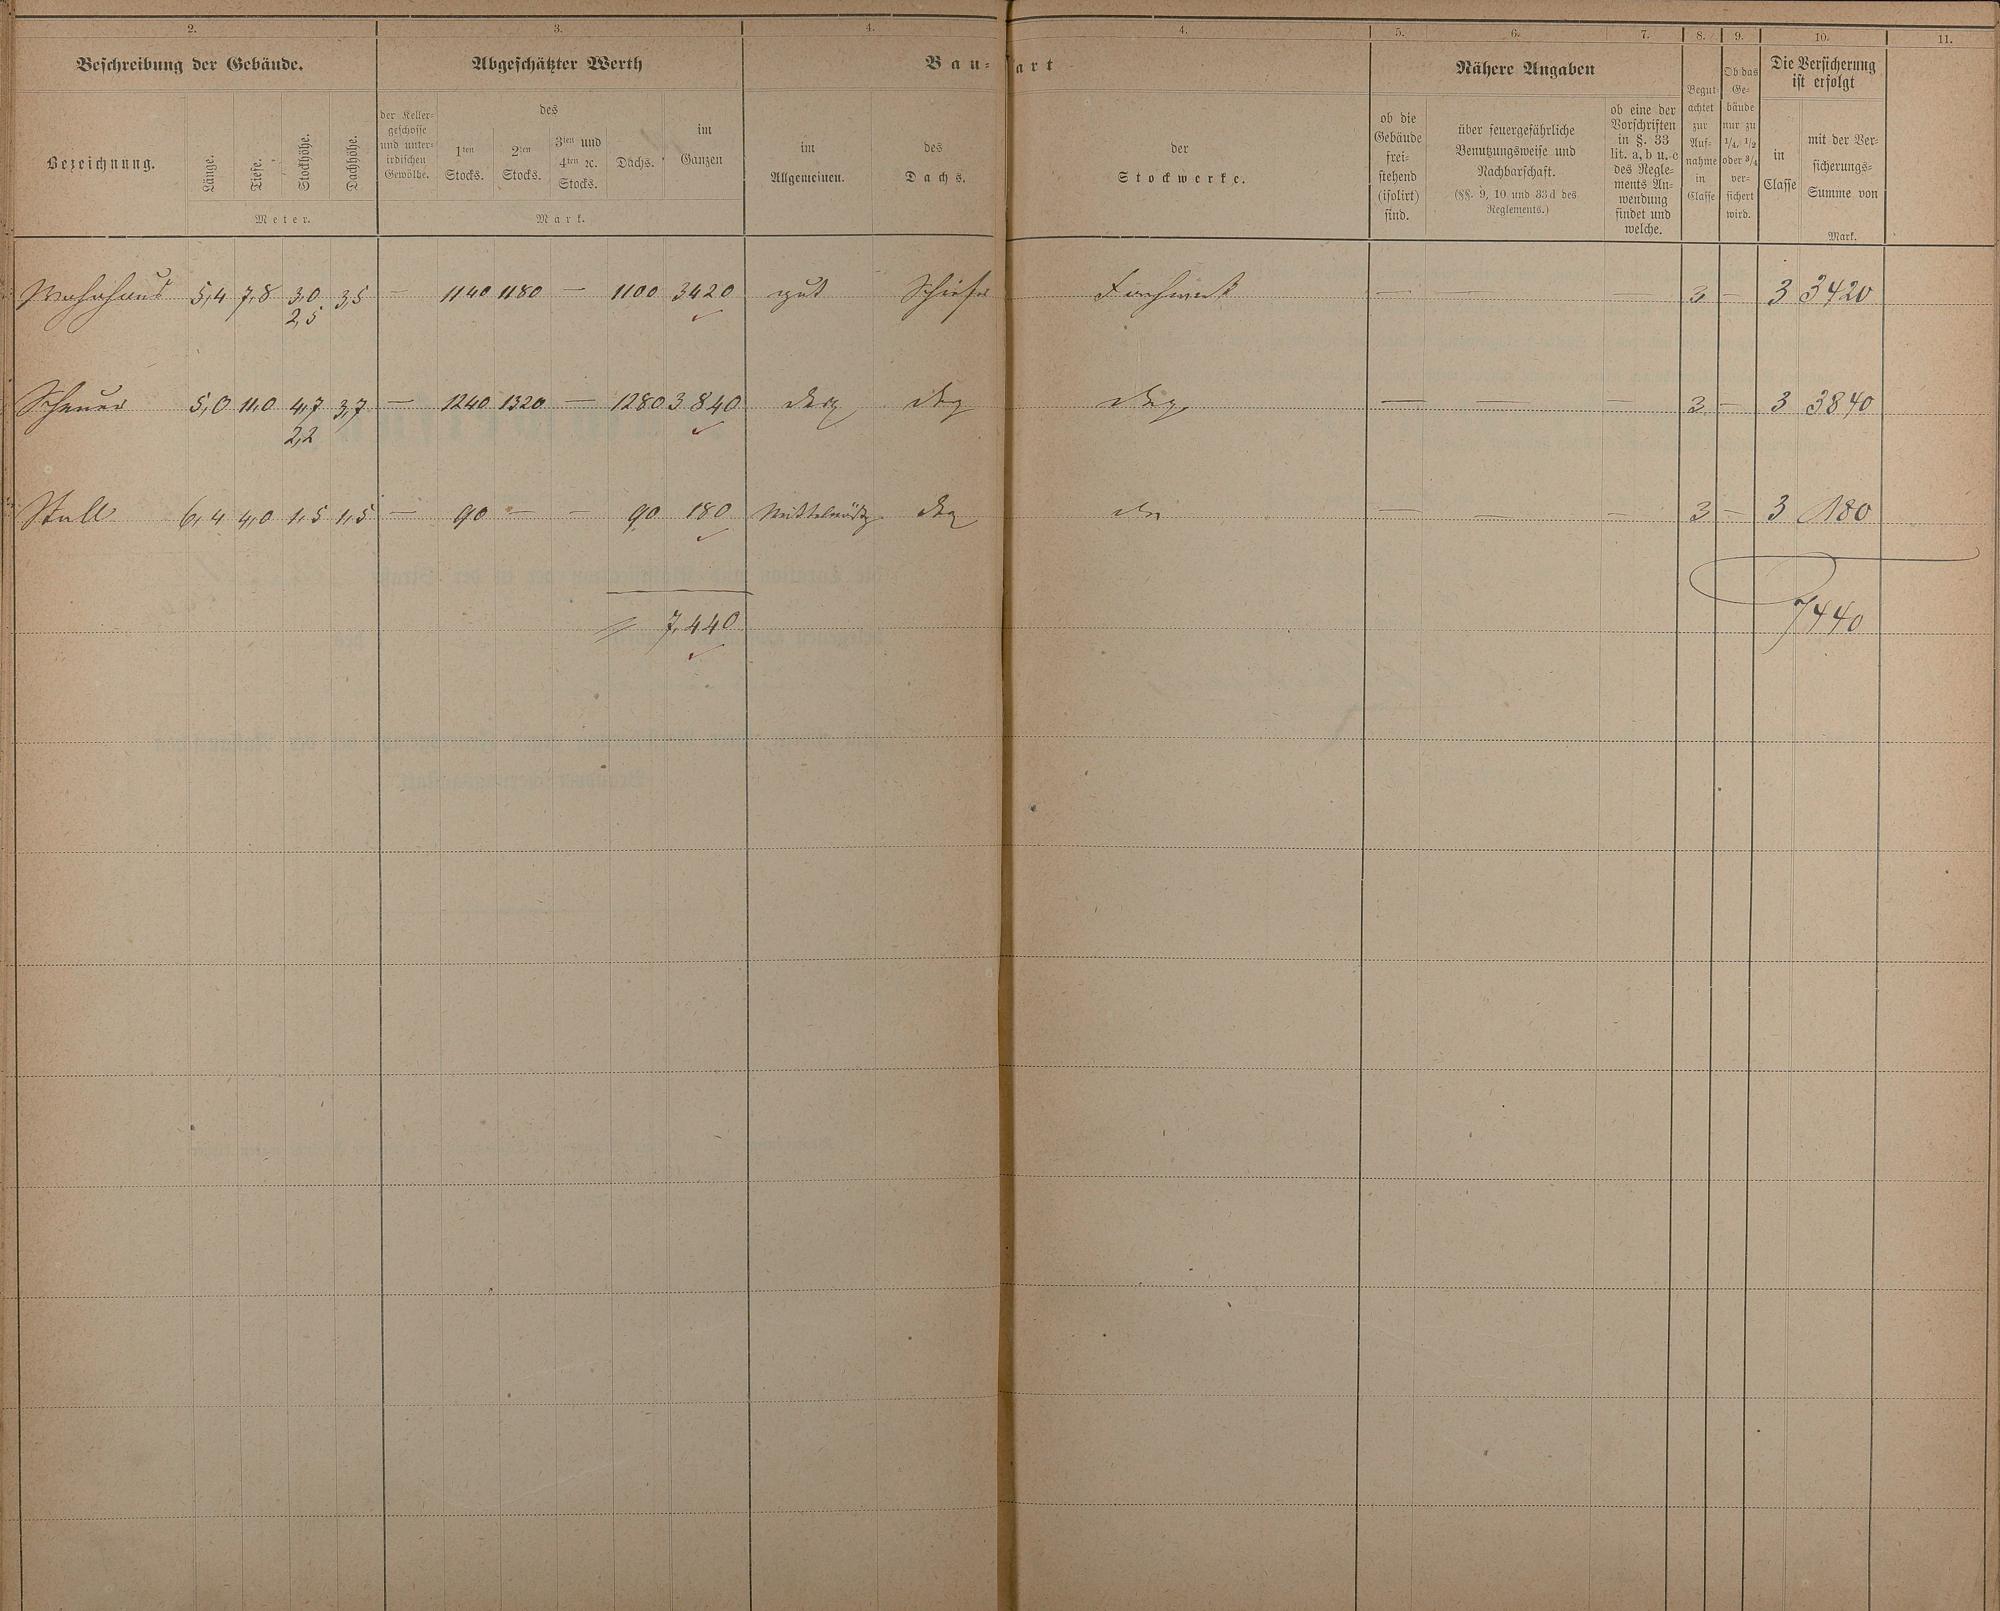 2. 3. 4. 4. 5. 6. 7. 8. 9. 10. 11.
Beschreibung der Gebäude. Abgeschätzter Werth Bau- art Nähere Angaben Die Versicherung ist erfolgt
Bezeichnung.
Länge. Tiefe. Stockhöhe. Dachhöhe.
Meter.
der Keller-
geschosse
und unter-
irdischen
Gewölbe.
des
1ten
Stocks.
2ten
Stocks.
3ten und
4ten ꝛc.
Stocks.
Dachs.
im
Ganzen
Mark.
im
Allgemeinen.
des
Dachs.
der
Stockwerke.
ob die
Gebäude
frei-
stehend
(isolirt)
sind.
über feuergefährliche
Benutzungsweise und
Nachbarschaft.
(§§. 9, 10 und 33d des
Reglements.)
ob eine der
Vorschriften
in §. 33
lit. a, b u. c
des Regle-
ments An-
wendung
findet und
welche.
Begut-
achtet
zur
Auf-
nahme
in
Classe
Ob das
Ge-
bäude
nur zu
1/4, 1/2
oder 3/4
ver-
sichert
wird.
in
Classe
mit der Ver-
sicherungs-
Summe von
Mark.
Wohnhaus 5,4 7,8 3,0 3,5 — 1140 1180 — 1100 3420 gut Schiefer Fachwerk — — — 3 — 3 3420
2,5
Scheuer 5,0 11,0 4,7 3,7 — 1240 1320 — 1280 3840 desg. desg. desg. — — — 3 — 3 3840
2,2
Stall 6,4 4,0 1,5 1,5 — 90 — — 90 180 Mittelmäßig desg. — — — 3 — 3 180
7,440 7440